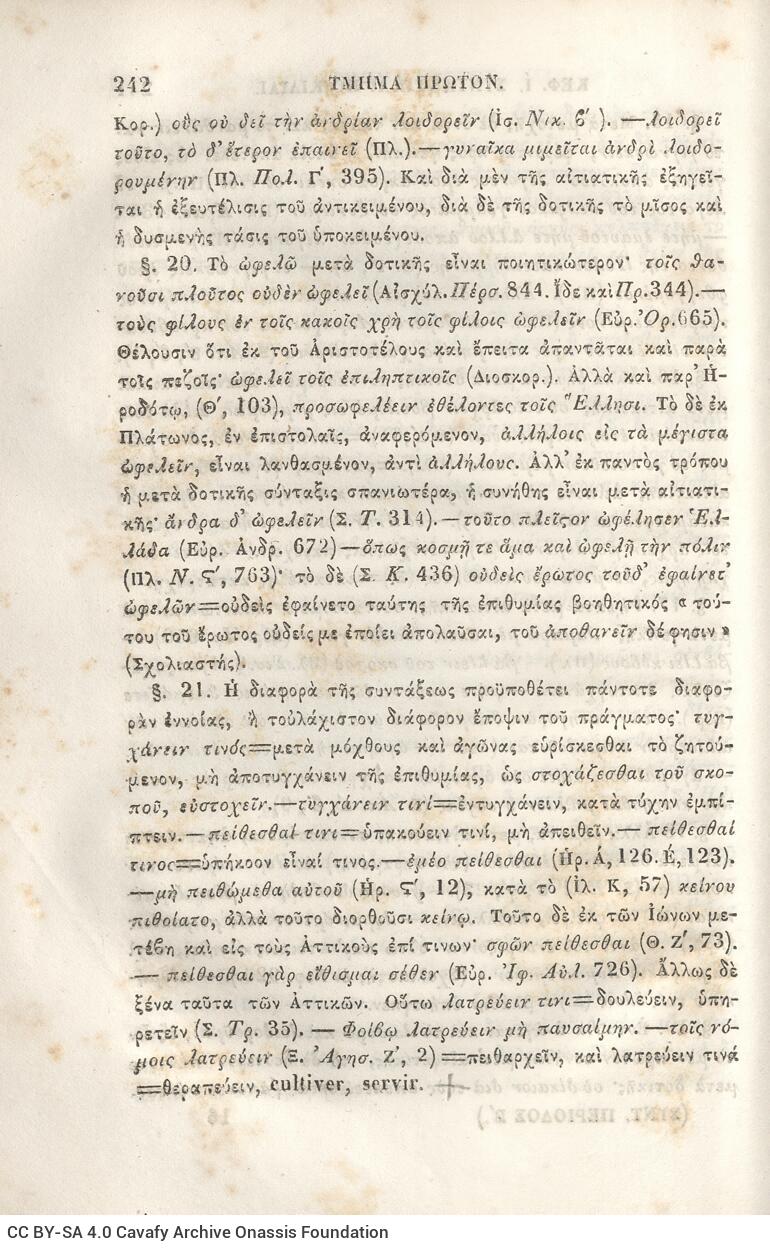 242 ΤΜΗΜΑ ΠΡΩΤΟΝ.
Κορ.) οὓς οὐ δεῖ τὴν ἀνδρίαν λοιδορεῖν (Ἰσ. Νικ. β´ ). —λοιδορεῖ
τοῦτο, τὸ δ᾽ ἕτερον ἐπαινεῖ (Πλ.).—γυναῖκα μιμεῖται ἀνδρὶ λοιδο-
ρουμένην (Πλ. Πολ. Γ´, 395). Καὶ διὰ μὲν τῆς αἰτιατικῆς ἐξηγεῖ-
ται ἡ ἐξευτέλισις τοῦ ἀντικειμένου, διὰ δὲ τῆς δοτικῆς τὸ μῖσος καὶ
ἡ δυσμενὴς τάσις τοῦ ὑποκειμένου.
§. 20. Τὸ ὠφελῶ μετὰ δοτικῆς εἶναι ποιητικώτερον· τοῖς θα-
νοῦσι πλοῦτος οὐδὲν ὠφελεῖ (Αἰσχύλ. Πέρσ. 844. Ἴδε καὶ Πρ. 344).—
τοὺς φίλους ἐν τοῖς κακοῖς χρὴ τοῖς φίλοις ὠφελεῖν (Εὐρ. Ὀρ. 665).
Θέλουσιν ὅτι ἐκ τοῦ Ἀριστοτέλους καὶ ἔπειτα ἀπαντᾶται καὶ παρὰ
τοῖς πεζοῖς· ὠφελεῖ τοῖς ἐπιληπτικοῖς (Διοσκορ.). Ἀλλὰ καὶ παρ᾽ Ἡ-
ροδότῳ, (Θ´, 103), προσωφελέειν ἐθέλοντες τοῖς Ἕλλησι. Τὸ δὲ ἐκ
Πλάτωνος, ἐν ἐπιστολαῖς, ἀναφερόμενον, ἀλλήλοις εἰς τὰ μέγιστα
ὠφελεῖν, εἶναι λανθασμένον, ἀντὶ ἀλλήλους. Ἀλλ᾽ ἐκ παντὸς τρόπου
ἡ μετὰ δοτικῆς σύνταξις σπανιωτέρα, ἡ συνήθης εἶναι μετὰ αἰτιατι-
κῆς· ἄνδρα δ᾽ ὠφελεῖν (Σ. Τ. 314).—τοῦτο πλεῖστον ὠφέλησεν Ἑλ-
λάδα (Εὐρ. Ἀνδρ. 672)—ὅπως κοσμῇ τε ἅμα καὶ ὠφελῇ τὴν πόλιν
(Πλ. Ν. Ϛ´, 763)· τὸ δὲ (Σ. Κ. 436) οὐδεὶς ἔρωτος τοῦδ᾽ ἐφαίνετ᾽
ὠφελῶν=οὐδεὶς ἐφαίνετο ταύτης τῆς ἐπιθυμίας βοηθητικός « τού-
του τοῦ ἔρωτος οὐδείς με ἐποίει ἀπολαῦσαι, τοῦ ἀποθανεῖν δέ φησιν »
(Σχολιαστής).
§. 21. Ἡ διαφορὰ τῆς συντάξεως προϋποθέτει πάντοτε διαφο-
ρὰν ἐννοίας, ἢ τοὐλάχιστον διάφορον ἔποψιν τοῦ πράγματος· τυγ-
χάνειν τινός=μετὰ μόχθους καὶ ἀγῶνας εὑρίσκεσθαι τὸ ζητού-
μενον, μὴ ἀποτυγχάνειν τῆς ἐπιθυμίας, ὡς στοχάζεσθαι τοῦ σκο-
ποῦ, εὐστοχεῖν.—τυγχάνειν τινί=ἐντυγχάνειν, κατὰ τύχην ἐμπί-
πτειν.—πείθεσθαί τινι=ὑπακούειν τινί, μὴ ἀπειθεῖν.— πείθεσθαί
τινος=ὑπήκοον εἶναί τινος.—ἐμέο πείθεσθαι (Ἡρ. Ά, 126. Έ, 123).
—μὴ πειθώμεθα αὐτοῦ (Ἡρ. Ϛ´, 12), κατὰ τὸ (Ἰλ. Κ, 57) κείνου
πιθοίατο, ἀλλὰ τοῦτο διορθοῦσι κείνῳ. Τοῦτο δὲ ἐκ τῶν Ἰώνων με-
τέβη καὶ εἰς τοὺς Ἀττικοὺς ἐπί τινων· σφῶν πείθεσθαι (Θ. Ζ´, 73).
— πείθεσθαι γὰρ εἴθισμαι σέθεν (Εὐρ. Ἰφ. Αὐλ. 726). Ἄλλως δὲ
ξένα ταῦτα τῶν Ἀττικῶν. Οὕτω λατρεύειν τινι=δουλεύειν, ὑπη-
ρετεῖν (Σ. Τρ. 35). — Φοίβῳ λατρεύειν μὴ παυσαίμην. —τοῖς νό-
μοις λατρεύειν (Ξ. Ἀγησ. Ζ´, 2)=πειθαρχεῖν, καὶ λατρεύειν τινά
=θεραπεύειν, cultiver, servir.
CC BY-SA 4.0 Cavafy Archive Onassis Foundation